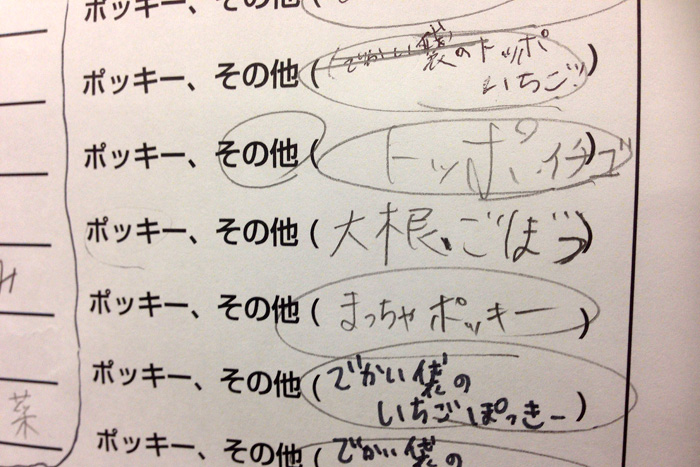 ポッキー、その他(
ポッキー、その他(でかい袋のトッポ
いちご)
ポッキー、その他(トッポ、イチゴ)
ポッキー、その他(大根、ごぼう)
ポッキー、その他(まっちゃポッキー)
ポッキー、その他(でかい袋の
いちごぽっきー)
ポッキー、その他(でかい袋の
菜